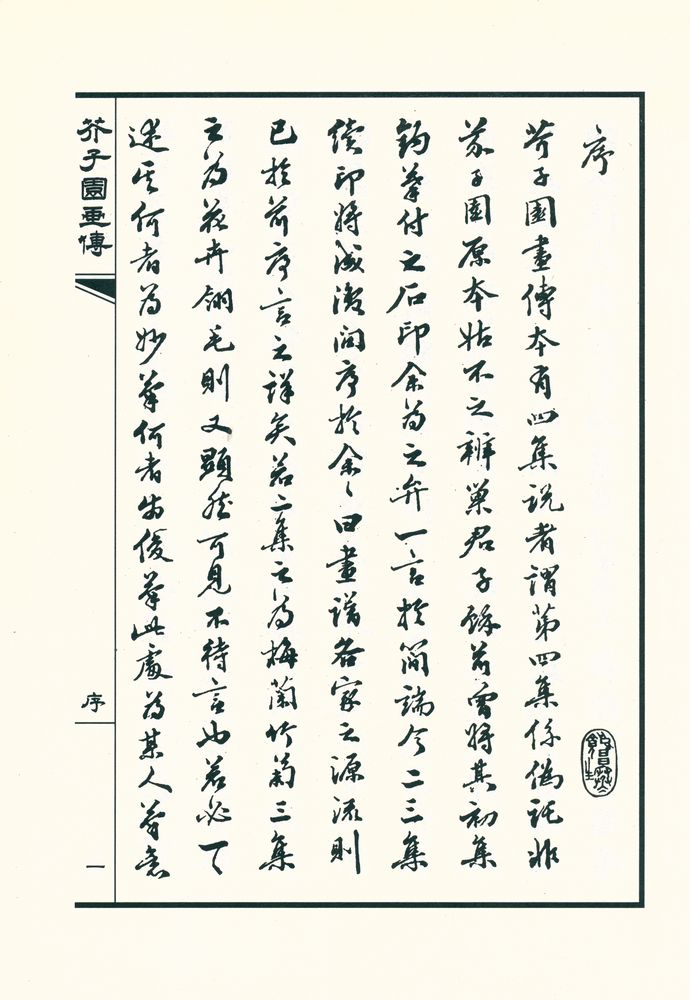 序
芥子園畫傳本有四集説者謂第四集係偽託非
芥子園原本姑不之辨巢君子餘前曾將其初集
鈎摹付之石印余為之弁一言於簡端今二三集
續印將成復問序於余〻曰畫譜各家之源流則
已於前序言之詳矣若二集之為梅蘭竹菊三集
之為花卉翎毛則又顯然可見不待言也若必一一
述其何者為妙筆何者為俊筆此處為某人筆意
芥子園畫傳
序
一